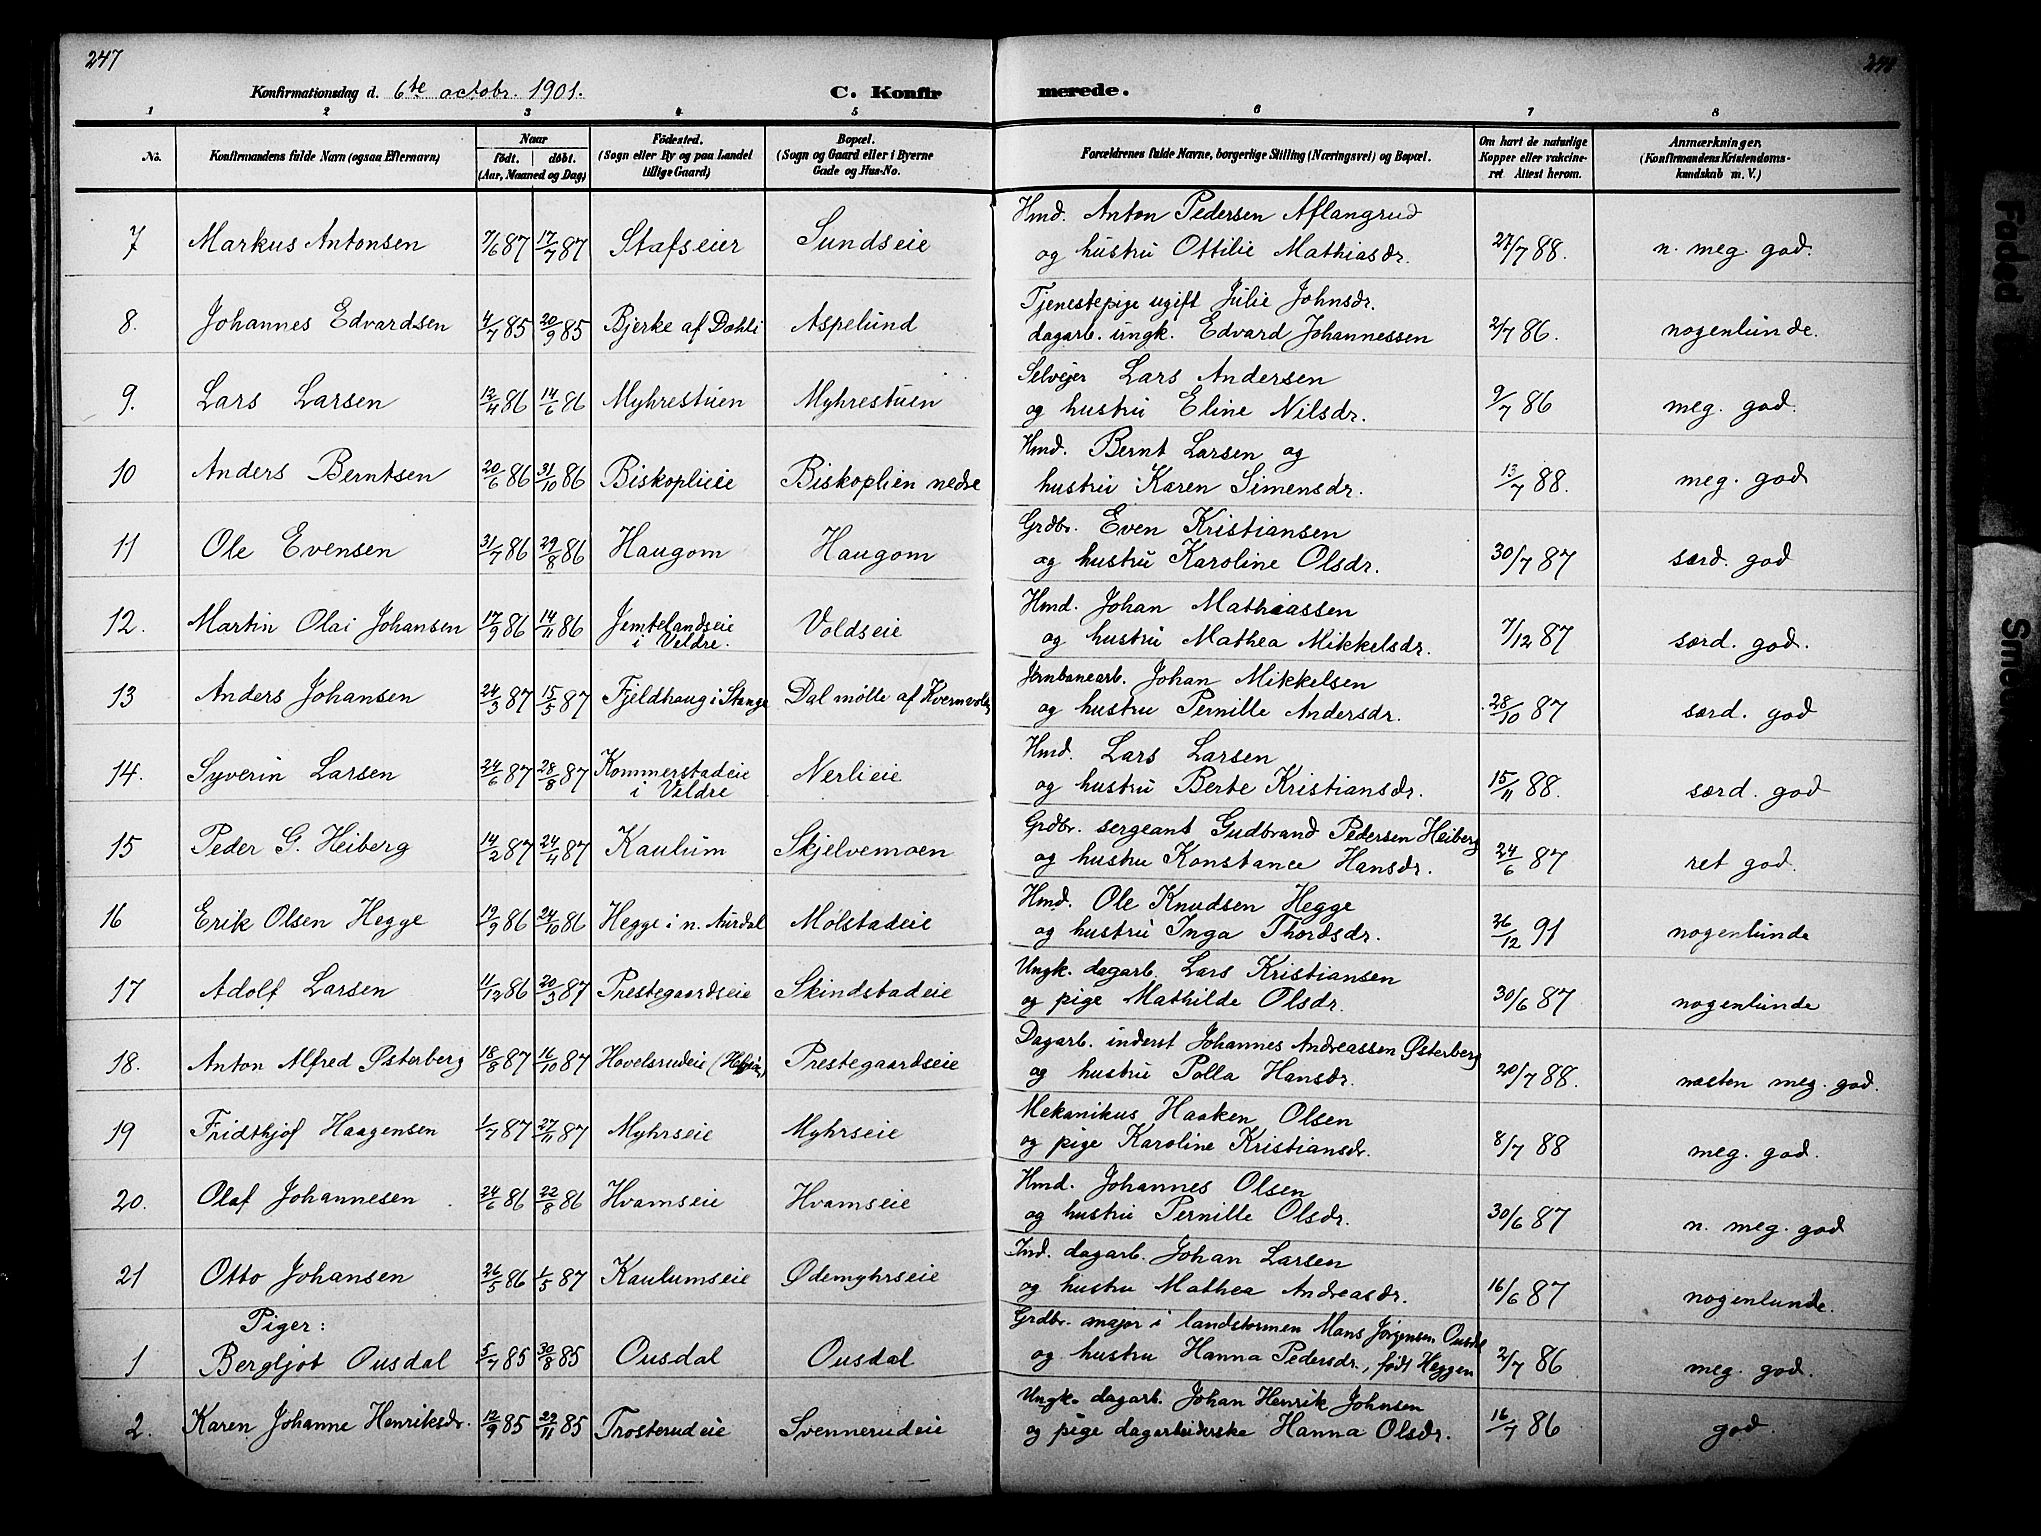 247
248
Konfirmationsdag d. 6te octobr. 1901. C. Konfirmerede.
1 2 3 4 5 6 7 8
No. Konfirmandens fulde Navn (ogsaa Efternavn) Naar født. døbt. (Aar, Maaned og Dag) Fødested. (Sogn eller By og paa Landet tillige Gaard) Bopæl. (Sogn og Gaard eller i Byerne Gade og Hus-No. Forældrenes fulde Navne, borgerlige Stilling (Næringsvei) og Bopæl. Om havt de naturlige Kopper eller vaccineret Attest herom. Anmærkninger, (Konfirmandens Kristendomskundskab m. V.)
7 Markus Antonsen 7/6 87 17/7 87 Stafseier Sundseie Hmd. Anton Pedersen Aflangrud
og hustru Ottilie Mathiasdr. 27/7 88. n. meg. god.
8. Johannes Edvardsen 4/7 85 20/9 85 Bjerke af Dæhli Aspelund Tjenestepige ugift Julie Johnsdr.
dagarb. ungk. Edvard Johannessen 2/7 86. nogenlunde.
9. Lars Larsen 12/4 86 14/6 86 Myhrestuen Myhrestuen Selvejer Lars Andersen
og hustru Eline Nilsdr. 9/7 86 meg. god.
10 Anders Berntsen 20/6 86 31/10 86 Biskoplieie Biskoplien nedre Hmd. Bernt Larsen og
hustru Karen Simensdr. 13/7 88. meg. god
11 Ole Evensen 31/7 86 29/8 86 Haugom Haugom Grdbr. Even Kristiansen
og hustru Karoline Olsdr. 30/7 87 særd. god
12. Martin Olai Johansen 17/9 86 14/11 86 Jemtelandseie i Veldre. Voldseie Hmd. Johan Mathiassen
og hustru Mathea Mikkelsdr. 7/12 87 særd. god.
13 Anders Johansen 24/3 87 15/5 87 Fjeldhaug i Stange Dal mølle af Jernbanearb. Johan Mikkelsen
og hustru Pernille Andersdr. 28/10 87 særd. god
14. Syverin Larsen 24/6 87 28/8 87 Kommerstadeie i Veldre Nerlieie Hmd. Lars Larsen
og hustru Berte Kristiansdr. 15/11 88. særd. god
15 Peder G. Heiberg 14/2 87 24/4 87 Kaulum Skjelvemoen Grdbr. sergeant Gudbrand Pedersen Heiberg
og hustru Konstance Hansdr. 24/6 87 ret god.
16 Erik Olsen Hegge 19/9 86 24/10 86 Hegge i n. Aurdal Mølstadeie Hmd. Ole Knudsen Hegge
og hustru Inga Thordsdr. 26/12 91 nogenlunde
17 Adolf Larsen 11/12 86 20/3 87 Prestegaardseie Skindstadeie Ungk. dagarb. Lars Kristiansen
og pige Mathilde Olsdr. 30/6 87 nogenlunde
18. Anton Alfred Østerberg 18/8 87 16/10 87 Hovelsrudeie Prestegaardseie Dagarb. inderst Johannes Andreassen Østerberg
og hustru Polla Hansdr. 20/7 88. næsten meg. god.
19 Fridthjof Haagensen 1/7 87 27/11 87 Myhrseie Myhrseie Mekanikus Haaken Olsen
og pige Karoline Kristiansdr. 8/7 88 meg. god.
20. Olaf Johannesen 24/6 86 22/8 86 Hvamseie Hvamseie Hmd. Johannes Olsen
og hustru Pernille Olsdr. 30/6 87 n. meg. god
21 Otto Johansen 26/5 86 1/5 87 Kaulumseie Ødemyhrseie Ind. dagarb. Johan Larsen
og hustru Mathea Andreasdr. 16/6 87 nogenlunde.
Piger:
1 Bergljot Ousdal 5/7 85 30/8 85 Ousdal Ousdal Grdbr. major i landstormen Mons Jørgensen Ousdal
og hustru Hanna Pedersdr., født Heggen 2/7 86 meg. god.
2. Karen Johanne Henriksdr. 12/9 85 22/11 85 Trosterudeie Svennerudeie Ungk. dagarb. Johan Henrik Johnsen
og pige dagarbeiderske Hanna Olsdr. 16/7 86 god.
Faded